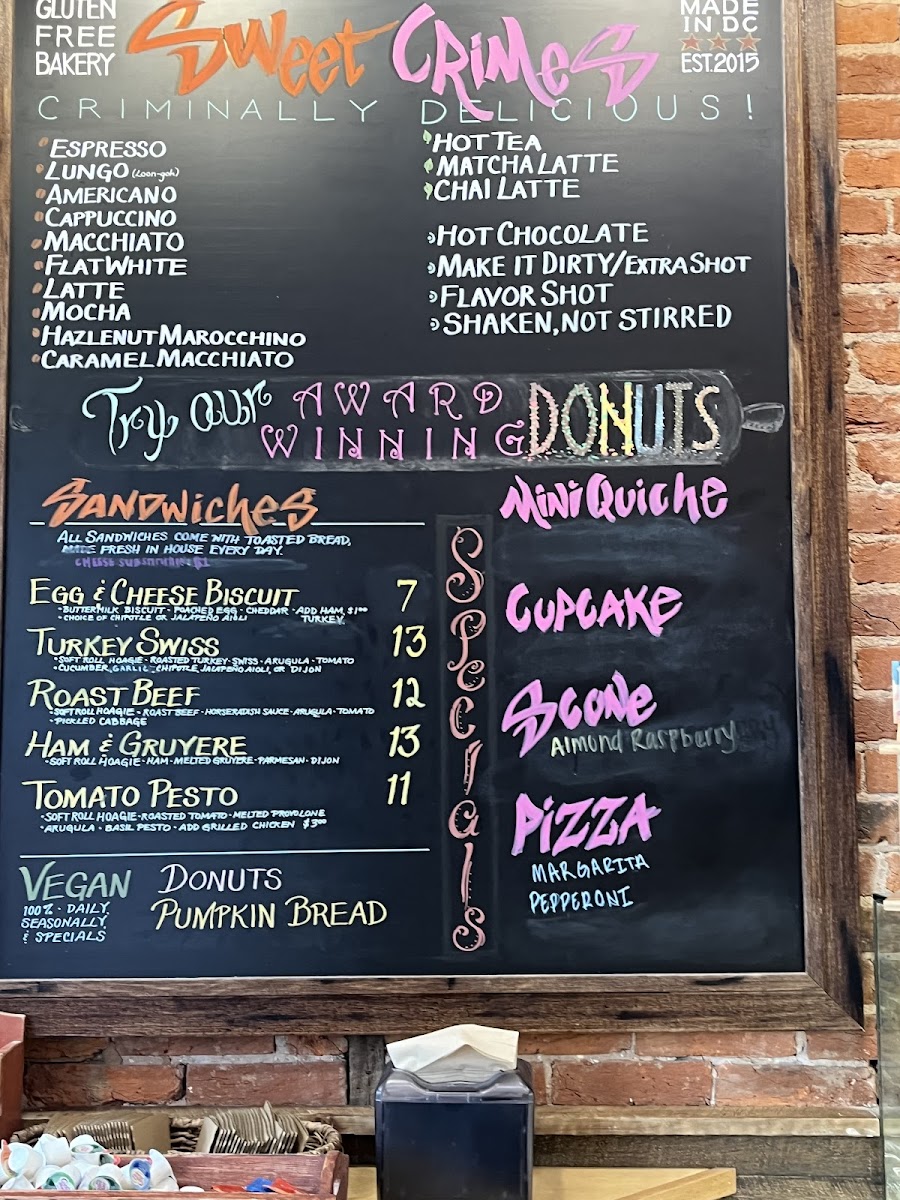 GLUTEN
FREE
BAKERY
Sweet CRiMeS
MADE
IN DC
EST.2015
CRIMINALLY DELICIOUS!
ESPRESSO
LUNGO (Loon-goh)
AMERICANO
CAPPUCCINO
MACCHIATO
FLAT WHITE
LATTE
MOCHA
HAZLENUT MAROCCHINO
CARAMEL MACCHIATO
HOT TEA
MATCHA LATTE
CHAI LATTE
HOT CHOCOLATE
MAKE IT DIRTY/EXTRA SHOT
FLAVOR SHOT
SHAKEN, NOT STIRRED
Try our AWARD WINNING DONUTS
SANDWICHES
ALL SANDWICHES COME WITH TOASTED BREAD,
MADE FRESH IN HOUSE EVERY DAY.
EGG & CHEESE BISCUIT 7
• BUTTERMILK BISCUIT • POACHED EGG • CHEDDAR • ADD HAM, $1⁰⁰
• CHOICE OF CHIPOTLE OR JALAPEÑO AIOLI TURKEY
TURKEY SWISS 13
• SOFT ROLL HOAGIE • ROASTED TURKEY • SWISS • ARUGULA • TOMATO
• CUCUMBER, GARLIC, CHIPOTLE, JALAPEÑO AIOLI, OR DIJON
ROAST BEEF 12
• SOFT ROLL HOAGIE • ROAST BEEF • HORSERADISH SAUCE • ARUGULA • TOMATO
• PICKLED CABBAGE
HAM & GRUYERE 13
• SOFT ROLL HOAGIE • HAM • MELTED GRUYERE • PARMESAN • DIJON
TOMATO PESTO 11
• SOFT ROLL HOAGIE • ROASTED TOMATO • MELTED PROVOLONE
• ARUGULA • BASIL PESTO • ADD GRILLED CHICKEN $3⁰⁰
VEGAN
100% • DAILY,
SEASONALLY,
& SPECIALS
DONUTS
PUMPKIN BREAD
SPecials
MiNi Quiche
CUPCAKE
SCONe
Almond Raspberry
PiZZA
MARGARITA
PEPPERONI